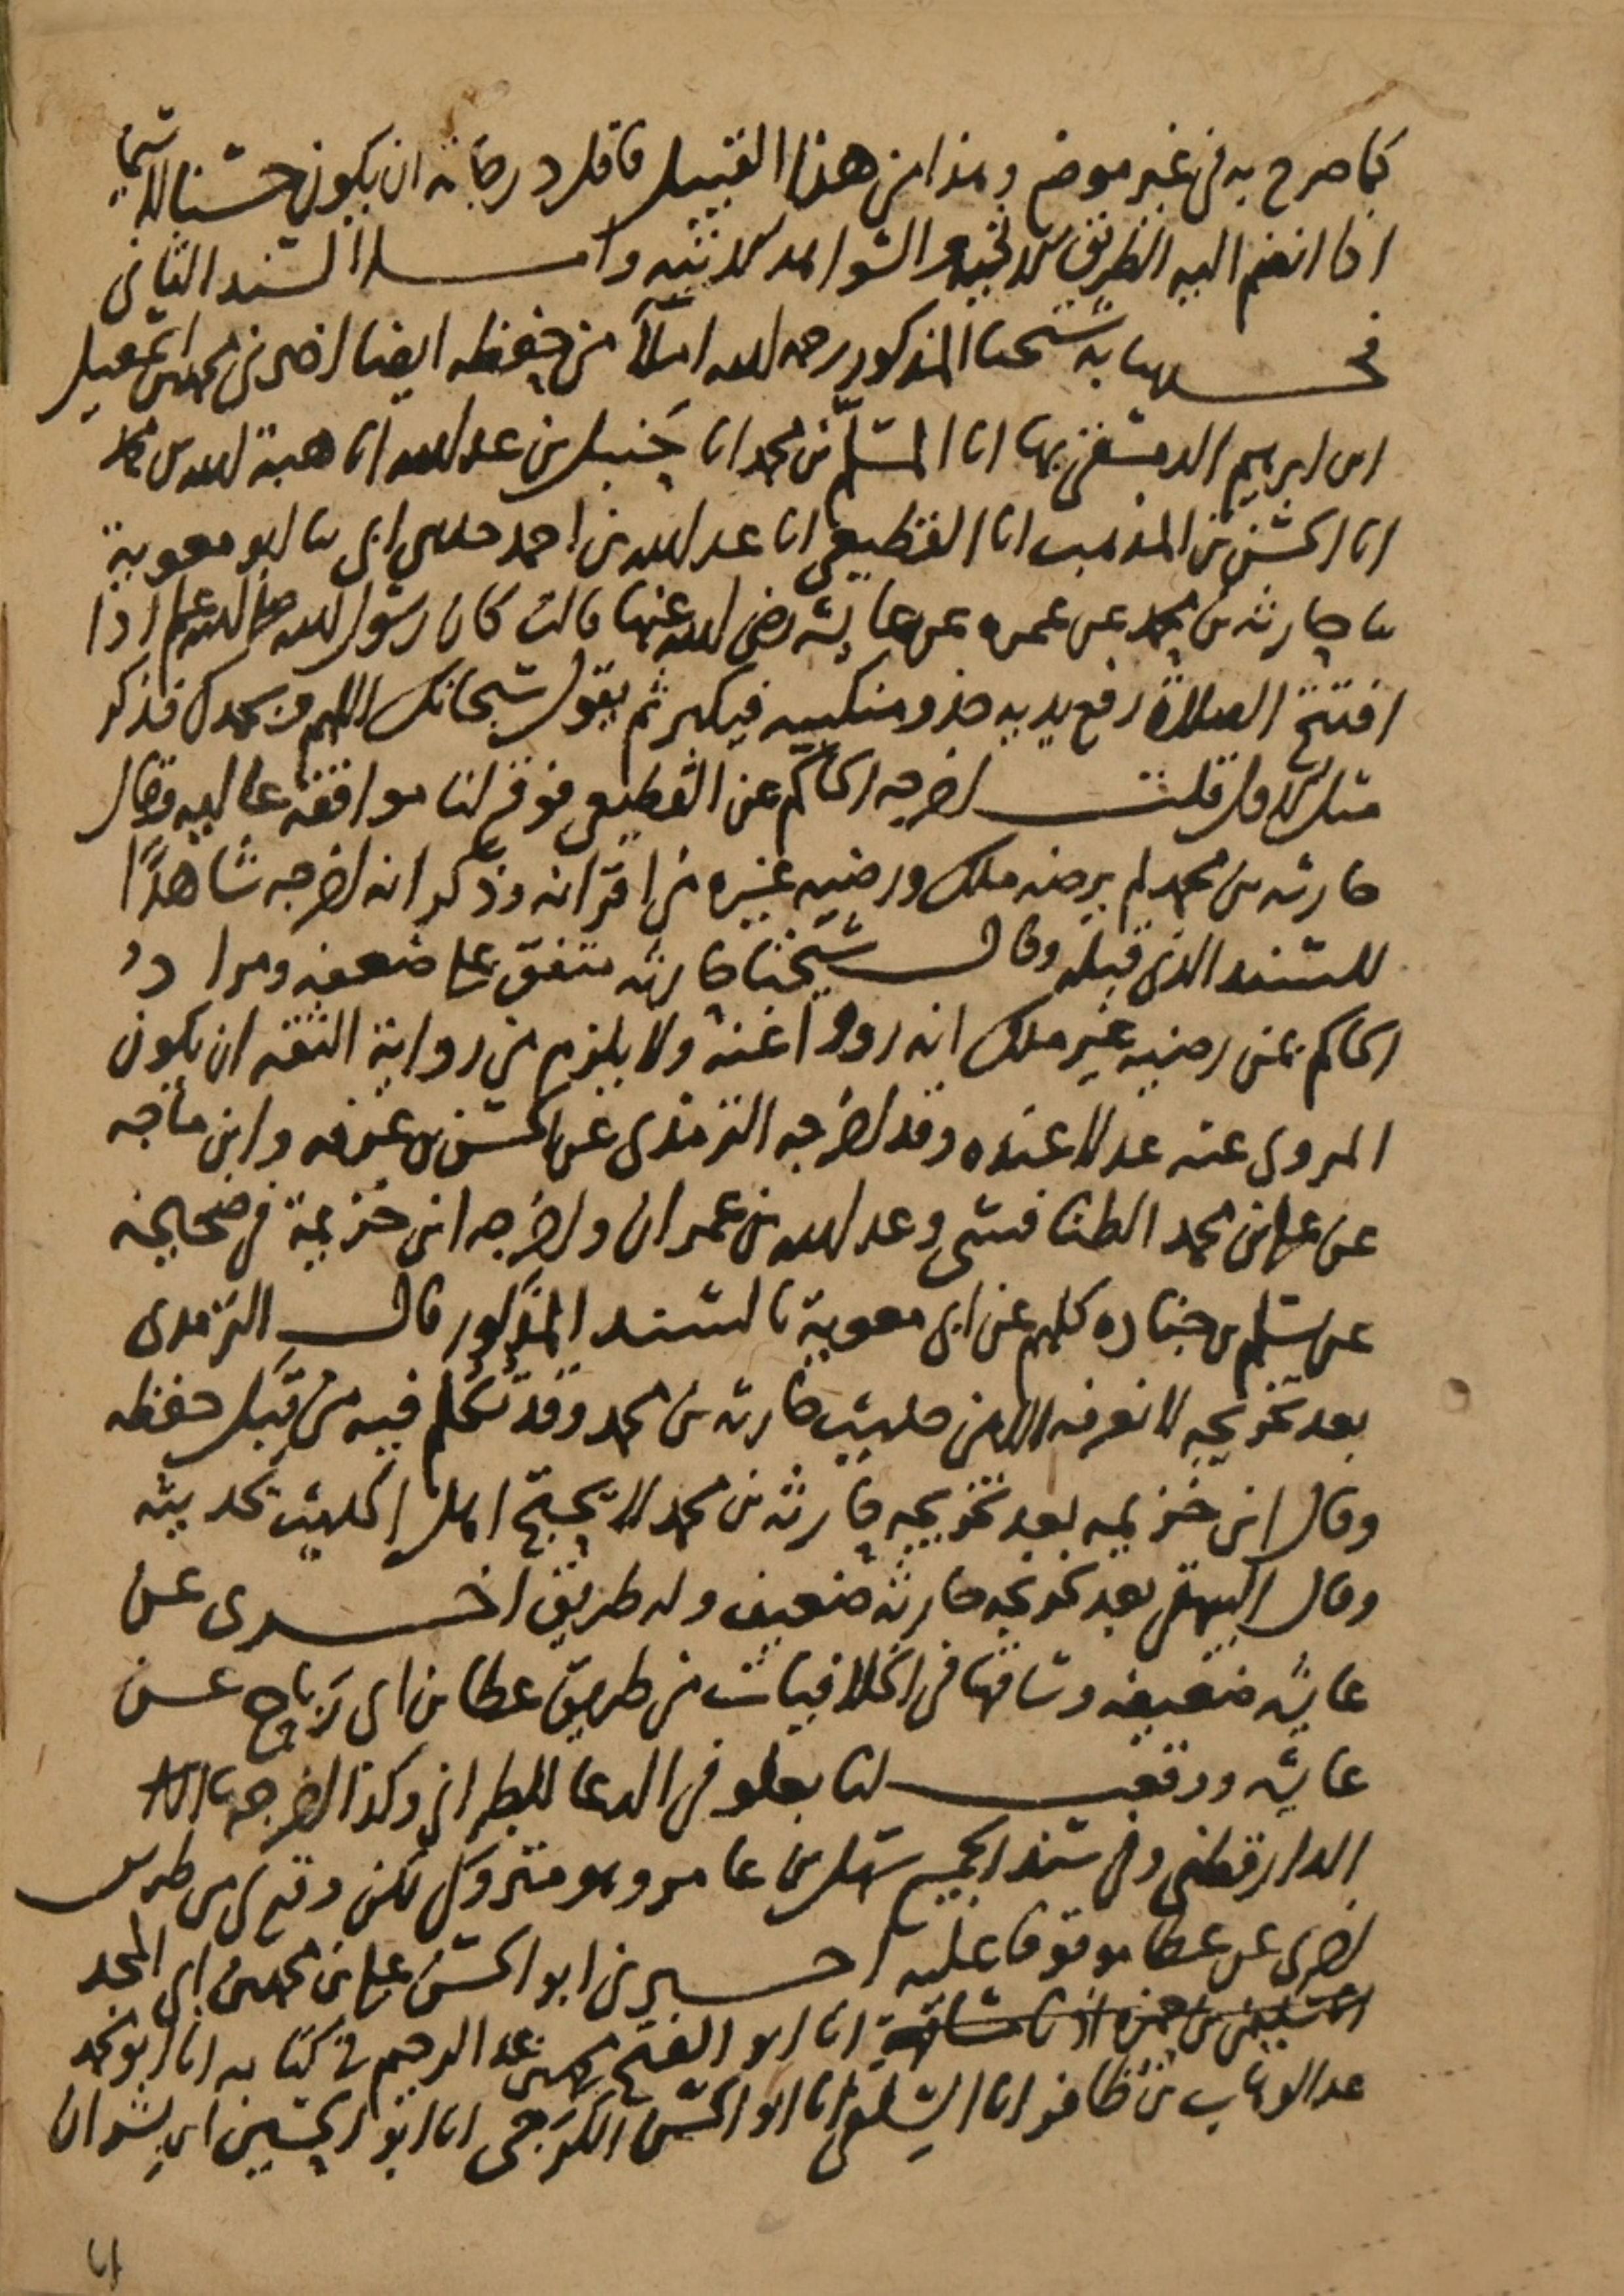 كما صرح به في غير موضع وهذا من هذا القبيل فاقل درجاته ان يكون حسنا لا سيما
اذا انضم اليه الطريق الاتيه والشواهد الاتيه واما السند الثاني
فحدثنا به شيخنا المذكور رحمه الله املاً من حفظه ايضا اخبرني محمد بن اسمعيل
ابن ابرهيم الدمشقي بها انا المسلّم بن محمد انا حنبل بن عبد الله انا هبة الله بن محمد
انا الحسن بن المذهب انا القطيعي انا عبد الله بن احمد حدثني ابي ثنا ابو معوية
ثنا حارثه بن محمد عن عمره عن عايشه رضي الله عنها قالت كان رسول الله صلى الله عليه وسلم اذا
افتتح الصلاة رفع يديه حذو منكبيه فيكبر ثم يقول سبحانك اللهم وبحمدك فذكر
مثل الاول قلت اخرجه الحاكم عن القطيعي فوقع لنا موافقة عاليه وقال
حارثه بن محمد لم يرضه ملك ورضيه غيره من اقرانه وذكر انه اخرجه شاهدًا
للسند الذي قبله وقال شيخنا حارثه متفق على ضعفه ومراد
الحاكم بمن رضيه غير ملك انه رووا عنه ولا يلزم من رواية الثقه ان يكون
المروي عنه عدلا عنده وقد اخرجه الترمذي عن الحسن بن عرفه وابن ماجه
عن علي بن محمد الطنافسي وعبد الله بن عمران واخرجه ابن خزيمة في صحيحه
عن سلم بن جناده كلهم عن ابي معوية بالسند المذكور قال الترمذي
بعد تخريجه لا نعرفه الا من حديث حارثه بن محمد وقد تكلم فيه من قبل حفظه
وقال ابن خزيمه بعد تخريجه حارثه بن محمد لا يحتج اهل الحديث بحديثه
وقال البيهقي بعد تخريجه حارثه ضعيف وله طريق اخرى عن
عايشه ضعيفه وساقها في الخلافيات من طريق عطا بن ابي رَباح عن
عايشه ووقعت لنا بعلو في الدعا للطبراني وكذا اخرجها
الدارقطني وفي سند الجميع سهل بن عامر وهو متروك لكن وقع لي من طريق
اخرى عن عطا موقوفا عليه اخبرني ابو الحسن علي بن محمد بن ابي المجد
انا ابو الفتح محمد بن عبد الرحيم في كتابه انا ابو محمد
عبد الوهاب بن ظافر انا السِلفي انا ابو الحسن الكرَجي انا ابو الحسين ابن بشران
انا